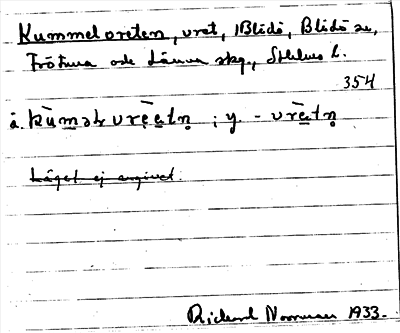 Kummelvreten, vret, Blidö, Blidö sn,
Frötuna och Länna skg., Sthlms l.
354
å. kùməlvrētn ; y. - vrētn
Läget ej angivet.
Rickard Norrman 1933.